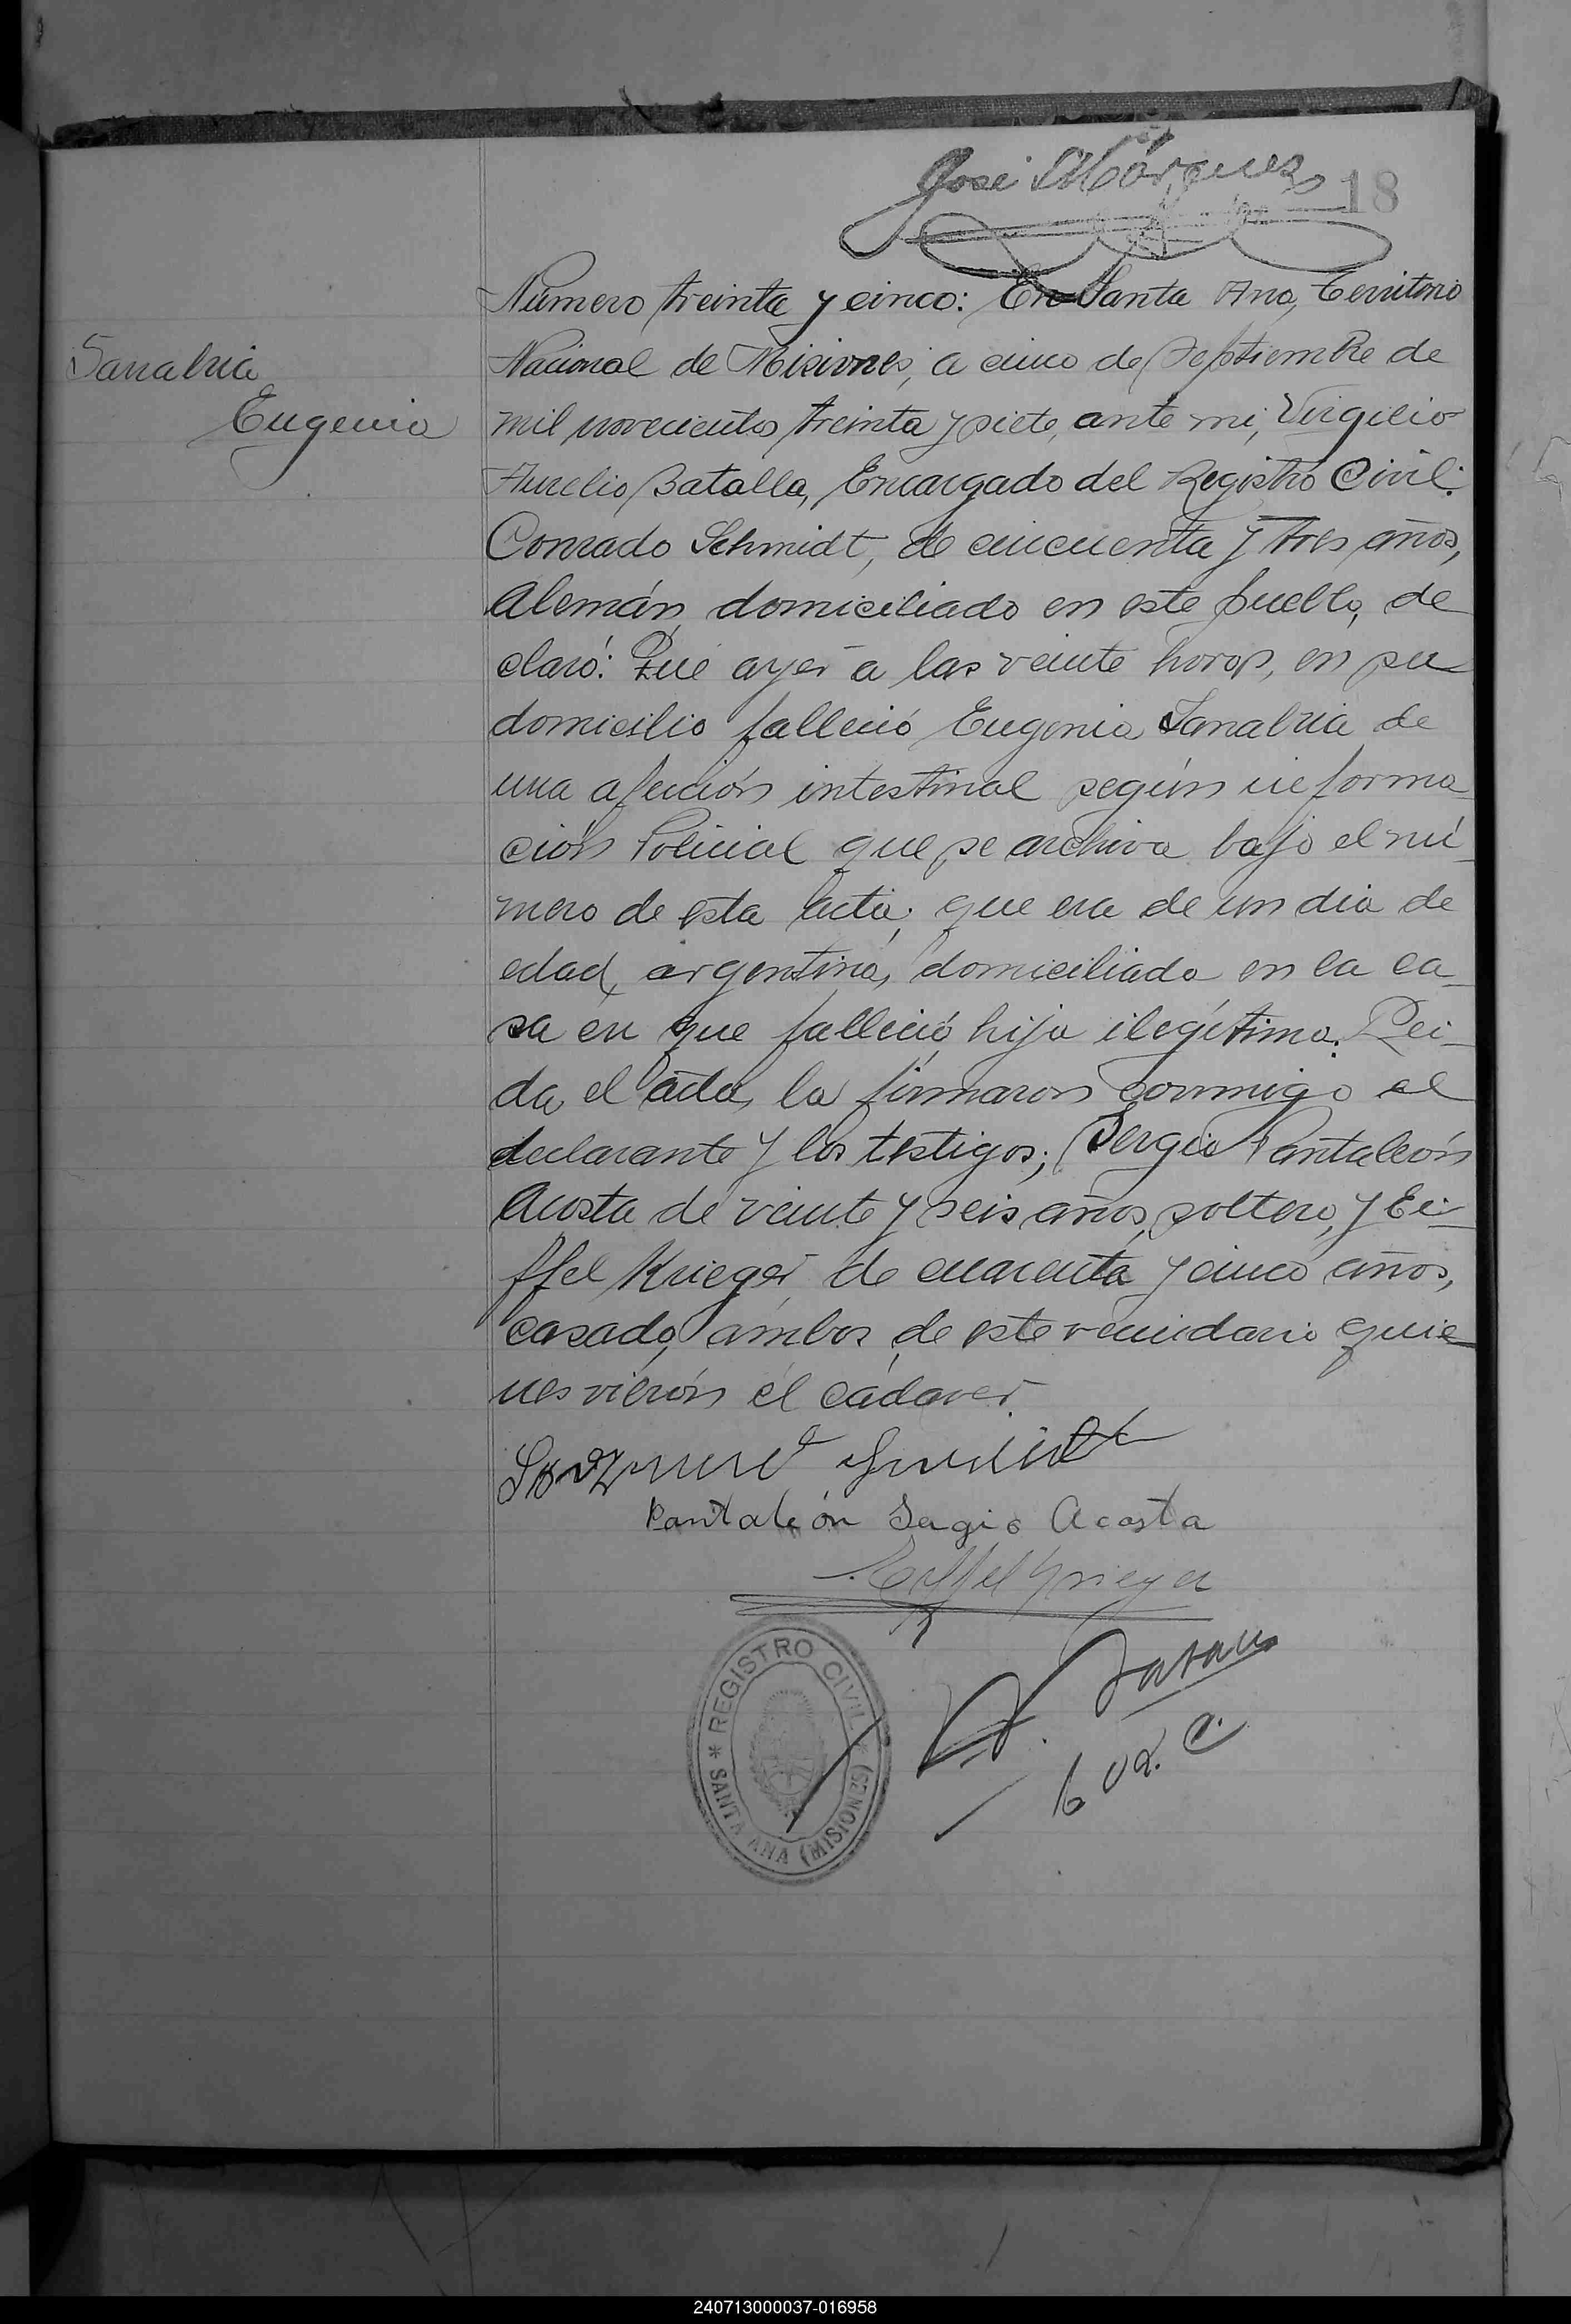 José Márquez
18
Número treinta y cinco: En Santa Ana, Territorio
Sanabria
Nacional de Misiones, a cinco de Septiembre de
Eugenia
mil novecientos treinta y siete, ante mi, Virgilio
Aurelio Batalla, Encargado del Registro Civil:
Conrado Schmidt, de cincuenta y tres años,
Alemán, domiciliado en este pueblo, de
claró: Que ayer a las veinte horas, en su
domicilio falleció Eugenia Sanabria de
una afección intestinal según informa_
ción Policial que se archiva bajo el nú_
mero de esta acta; que era de un dia de
edad, argentina, domiciliada en la ca_
sa en que falleció, hija ilegítima. Lei_
da el acta, la firmaron conmigo el
declarante y los testigos; Sergio Pantaleón
Acosta de veinte y seis años, soltero, y Ei_
ffel Krieger, de cuarenta y cinco años,
casado, ambos de este vecindario quie
nes vieron el cadaver.
Pantaleón Sergio Acosta
Eiffel Krieger
REGISTRO CIVIL
* SANTA ANA (MISIONES) *
240713000037-016958